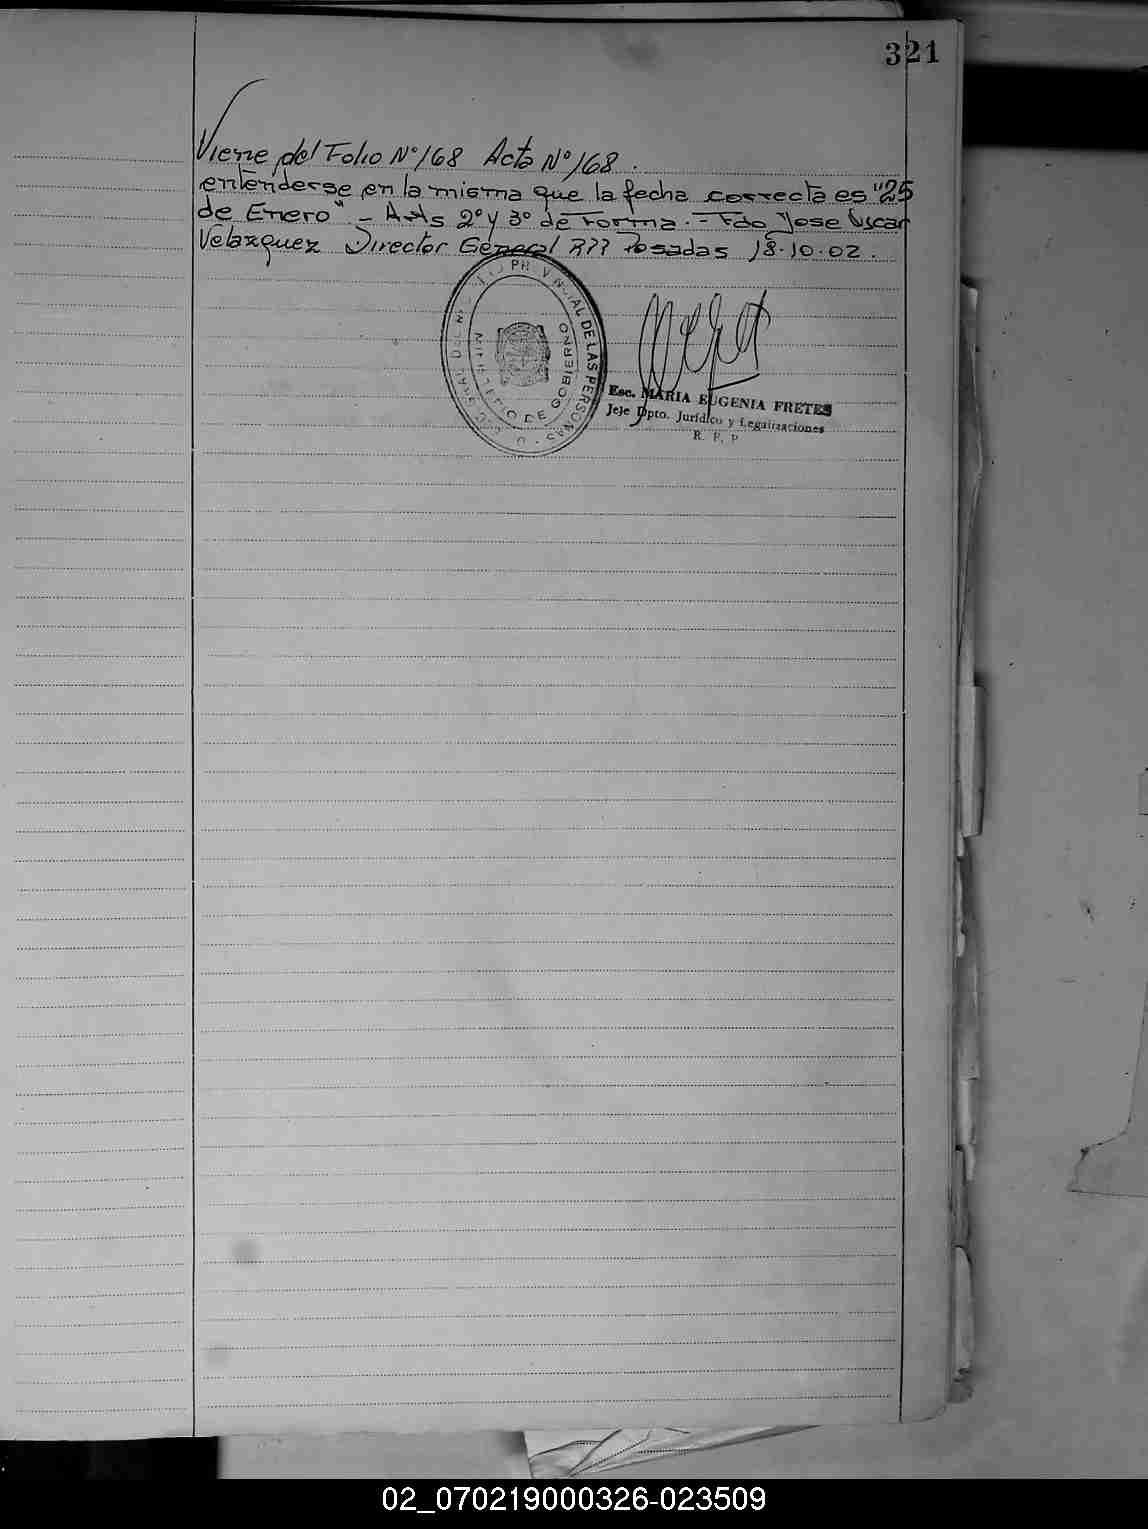 321
Viene del Folio Nº 168 Acta Nº 168.
entenderse en la misma que la fecha correcta es "25
de Enero". - Arts 2º y 3º de Forma. - Fdo Jose Oscar
Velazquez Director General Posadas 18.10.02.
PROVINCIAL DE LAS PERSONAS
MINISTERIO DE GOBIERNO
Esc. MARIA EUGENIA FRETES
Jefe Dpto. Jurídico y Legalizaciones
R. P. P.
02_070219000326-023509